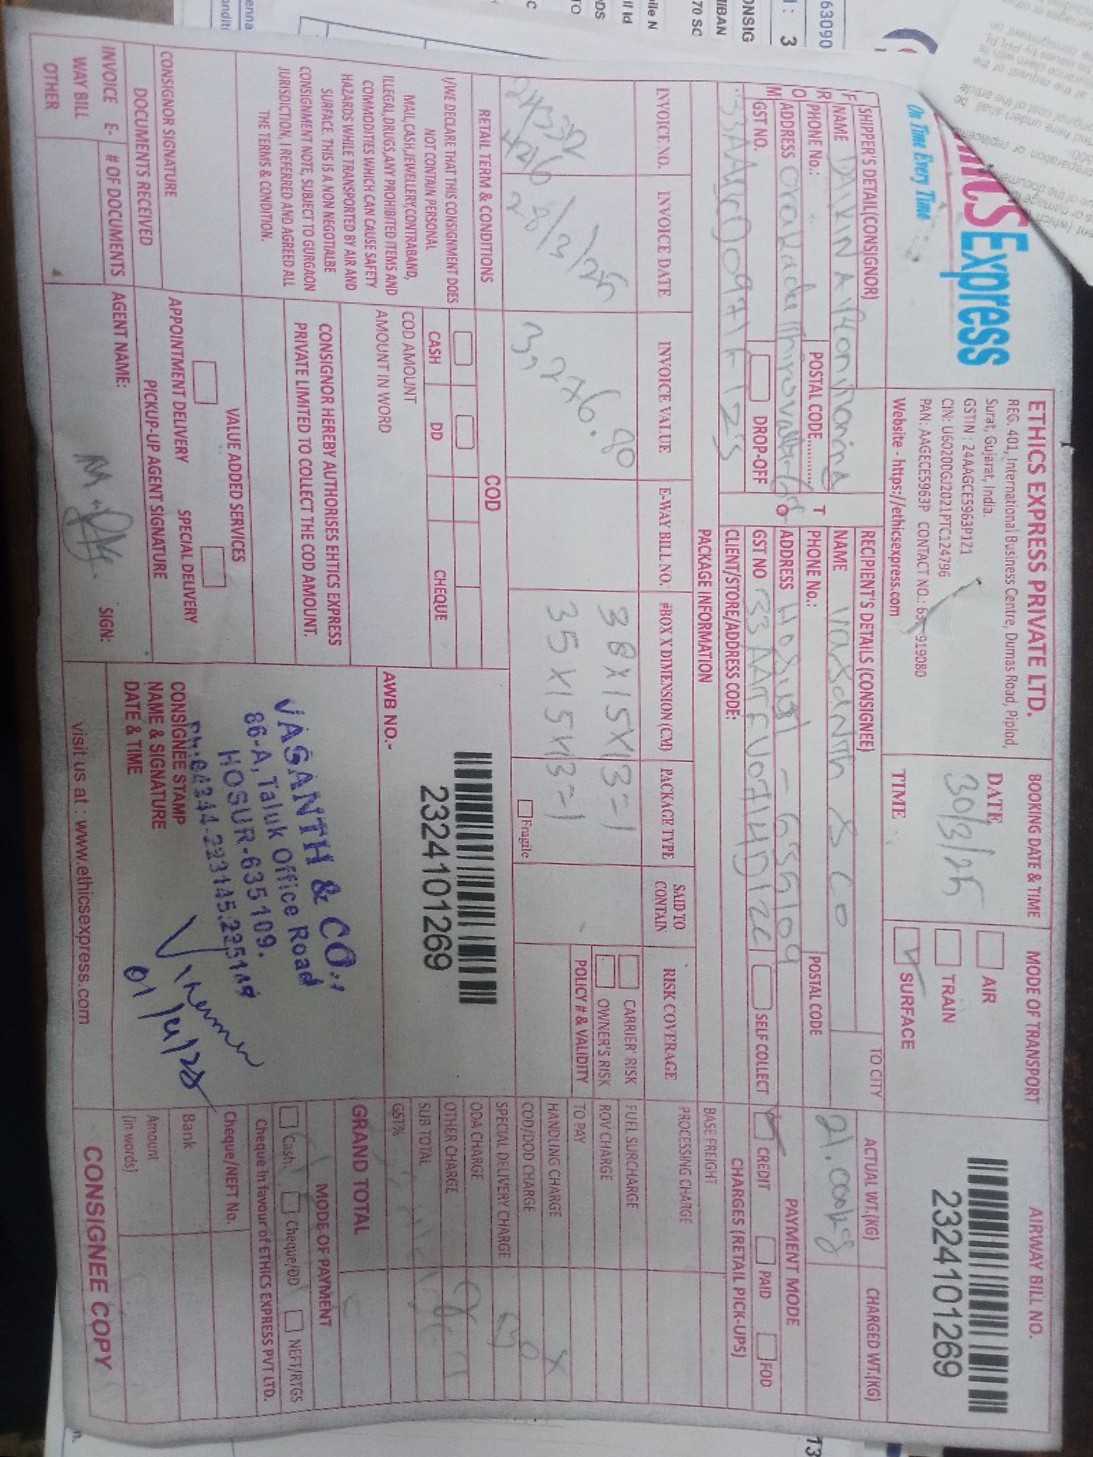 Express
On Time Every Time
ETHICS EXPRESS PRIVATE LTD.
REG. 401, International Business Centre, Dumas Road, Piplod,
Surat, Gujarat, India.
GSTIN : 24AAGCE5963P1Z1
CIN: U60200GJ2021PTC124796
PAN: AAGECE5963P CONTACT NO.:
Website - https://ethicsexpress.com
BOOKING DATE & TIME
DATE
30/3/25
TIME
MODE OF TRANSPORT
AIR
TRAIN
SURFACE
AIRWAY BILL NO.
2324101269
SHIPPER'S DETAIL(CONSIGNOR)
NAME DAIKIN
PHONE No.:
POSTAL CODE
ADDRESS
GST NO.
DROP-OFF
FROM
TO
RECIPIENT'S DETAILS (CONSIGNEE)
TO CITY
NAME Vasanth & Co
PHONE No.:
POSTAL CODE
ADDRESS Hosur - 635109
GST NO
SELF COLLECT
CLIENT/STORE/ADDRESS CODE:
ACTUAL WT.(KG)
CHARGED WT.(KG)
21.00kg
PAYMENT MODE
CREDIT
PAID
FOD
CHARGES (RETAIL PICK-UPS)
PACKAGE INFORMATION
INVOICE NO.
INVOICE DATE
INVOICE VALUE
E-WAY BILL NO.
#BOX X DIMENSION (CM)
PACKAGE TYPE
SAID TO CONTAIN
RISK COVERAGE
28/3/25
3,276.80
38X15X13=1
35X15X13=1
Fragile
CARRIER' RISK
OWNER'S RISK
POLICY # & VALIDITY
BASE FREIGHT
PROCESSING CHARGE
FUEL SURCHARGE
ROV CHARGE
TO PAY
HANDLING CHARGE
COD/DOD CHARGE
SPECIAL DELIVERY CHARGE
ODA CHARGE
OTHER CHARGE
SUB TOTAL
GST%
GRAND TOTAL
RETAIL TERM & CONDITIONS
I/WE DECLARE THAT THIS CONSIGNMENT DOES
NOT CONTAIN PERSONAL
MAIL,CASH,JEWELLERY,CONTRABAND,
ILLEGAL,DRUGS,ANY PROHIBITED ITEMS AND
COMMODITIES WHICH CAN CAUSE SAFETY
HAZARDS WHILE TRANSPORTED BY AIR AND
SURFACE. THIS IS A NON NEGOTIALBE
CONSIGNMENT NOTE, SUBJECT TO GURGAON
JURISDICTION, I REFERRED AND AGREED ALL
THE TERMS & CONDITION.
COD
CASH
DD
CHEQUE
COD AMOUNT
AMOUNT IN WORD
CONSIGNOR HEREBY AUTHORISES EHTICS EXPRESS
PRIVATE LIMITED TO COLLECT THE COD AMOUNT.
VALUE ADDED SERVICES
APPOINTMENT DELIVERY
SPECIAL DELIVERY
PICKUP-UP AGENT SIGNATURE
AGENT NAME:
SIGN:
CONSIGNOR SIGNATURE
DOCUMENTS RECEIVED
INVOICE E-WAY BILL
# OF DOCUMENTS
OTHER
AWB NO.-
2324101269
VASANTH & CO.,
86-A, Taluk Office Road
HOSUR-635 109.
CONSIGNEE STAMP
NAME & SIGNATURE
DATE & TIME
01/4/25
visit us at : www.ethicsexpress.com
MODE OF PAYMENT
Cash
Cheque/DD
NEFT/RTGS
Cheque in favour of ETHICS EXPRESS PVT LTD.
Cheque/NEFT No.
Bank
Amount
(in words)
CONSIGNEE COPY